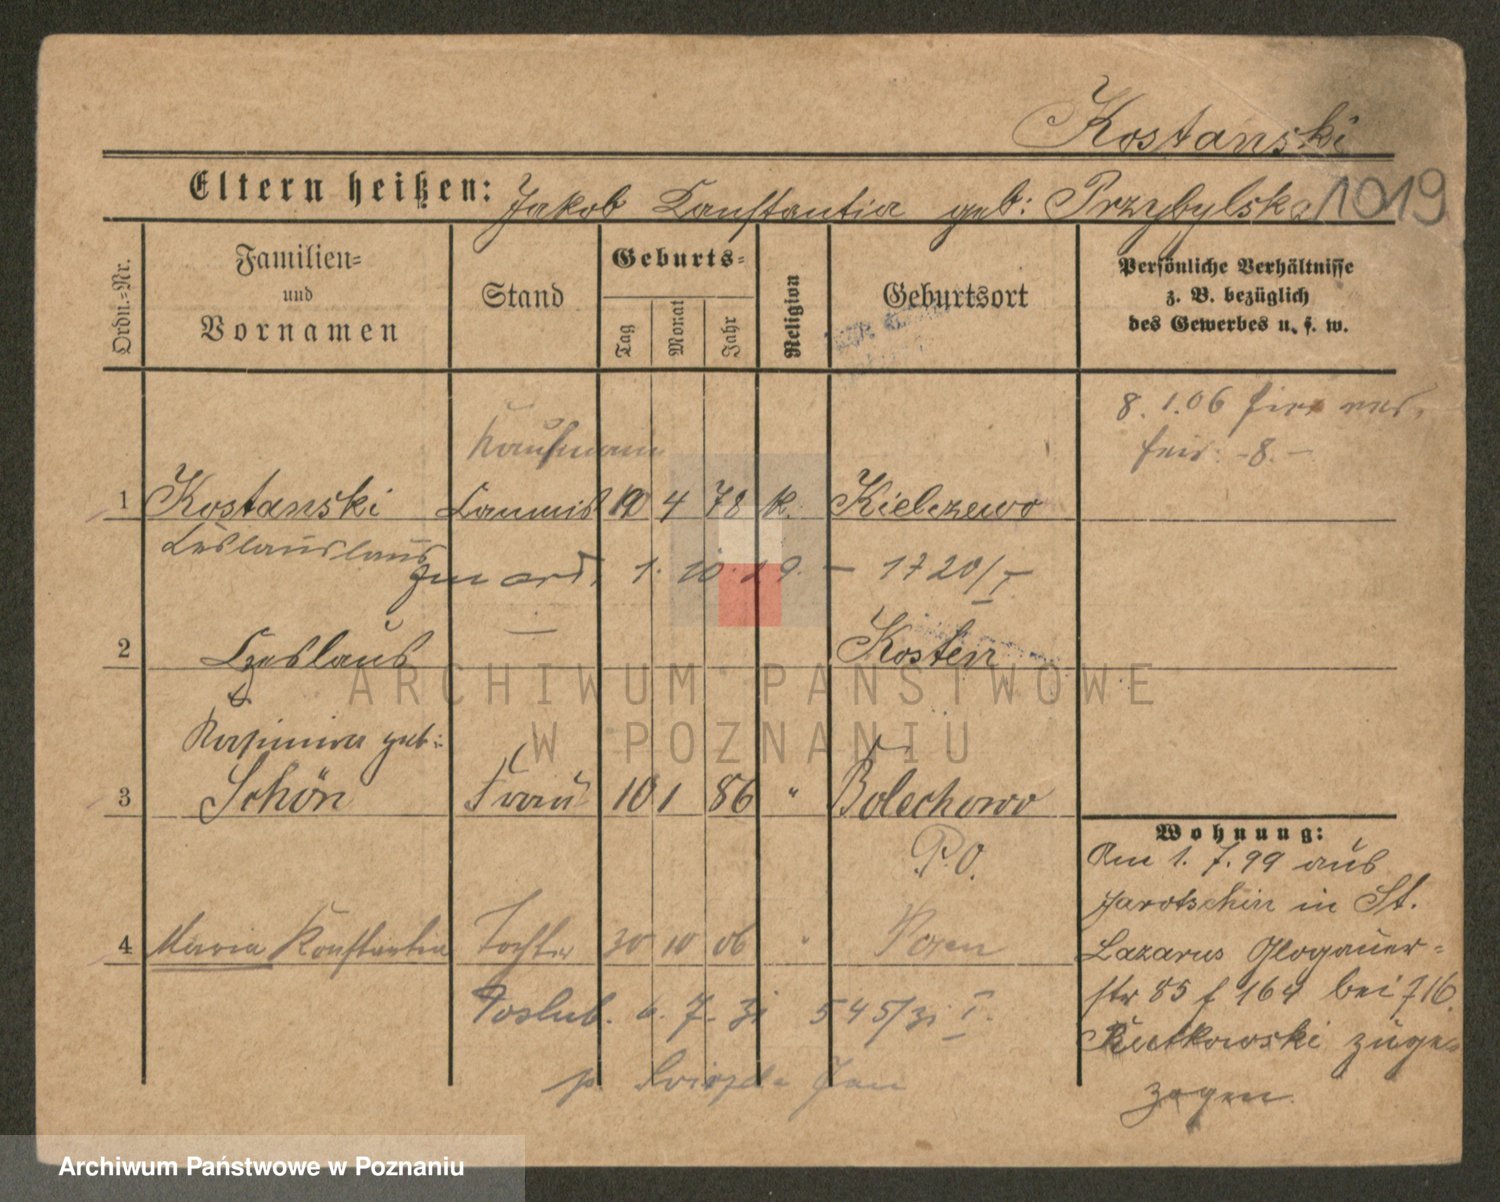 Kostanski
Eltern heißen: Jakob Constantia geb: Przybylska 1019
Ordn.=Nr.
Familien=
und
Vornamen
Stand
Geburts=
Tag
Monat
Jahr
Religion
Geburtsort
Persönliche Verhältnisse
z. B. bezüglich
des Gewerbes u. s. w.
8. 1.06
Kaufmann
1 Kostanski Commis 4 78 k. Kielczewo
zm ard. 1. 10. 19. – 1720/I
2 Czeslaus — Kosten
Kasimira geb:
3 Schön Frau 10 1 86 " Bolechowo
P.O.
4 Maria Konstantia Tochter 30 10 06 " Posen
Poslub. 6. 7. 31 545/31 I.
Jan
Wohnung:
Am 1. 7. 99 aus
Jarotschin in St.
Lazarus Glogauer=
str 85 f 164 bei 716
Rutkowski zuge=
zogen.
ARCHIWUM PAŃSTWOWE
W POZNANIU
Archiwum Państwowe w Poznaniu